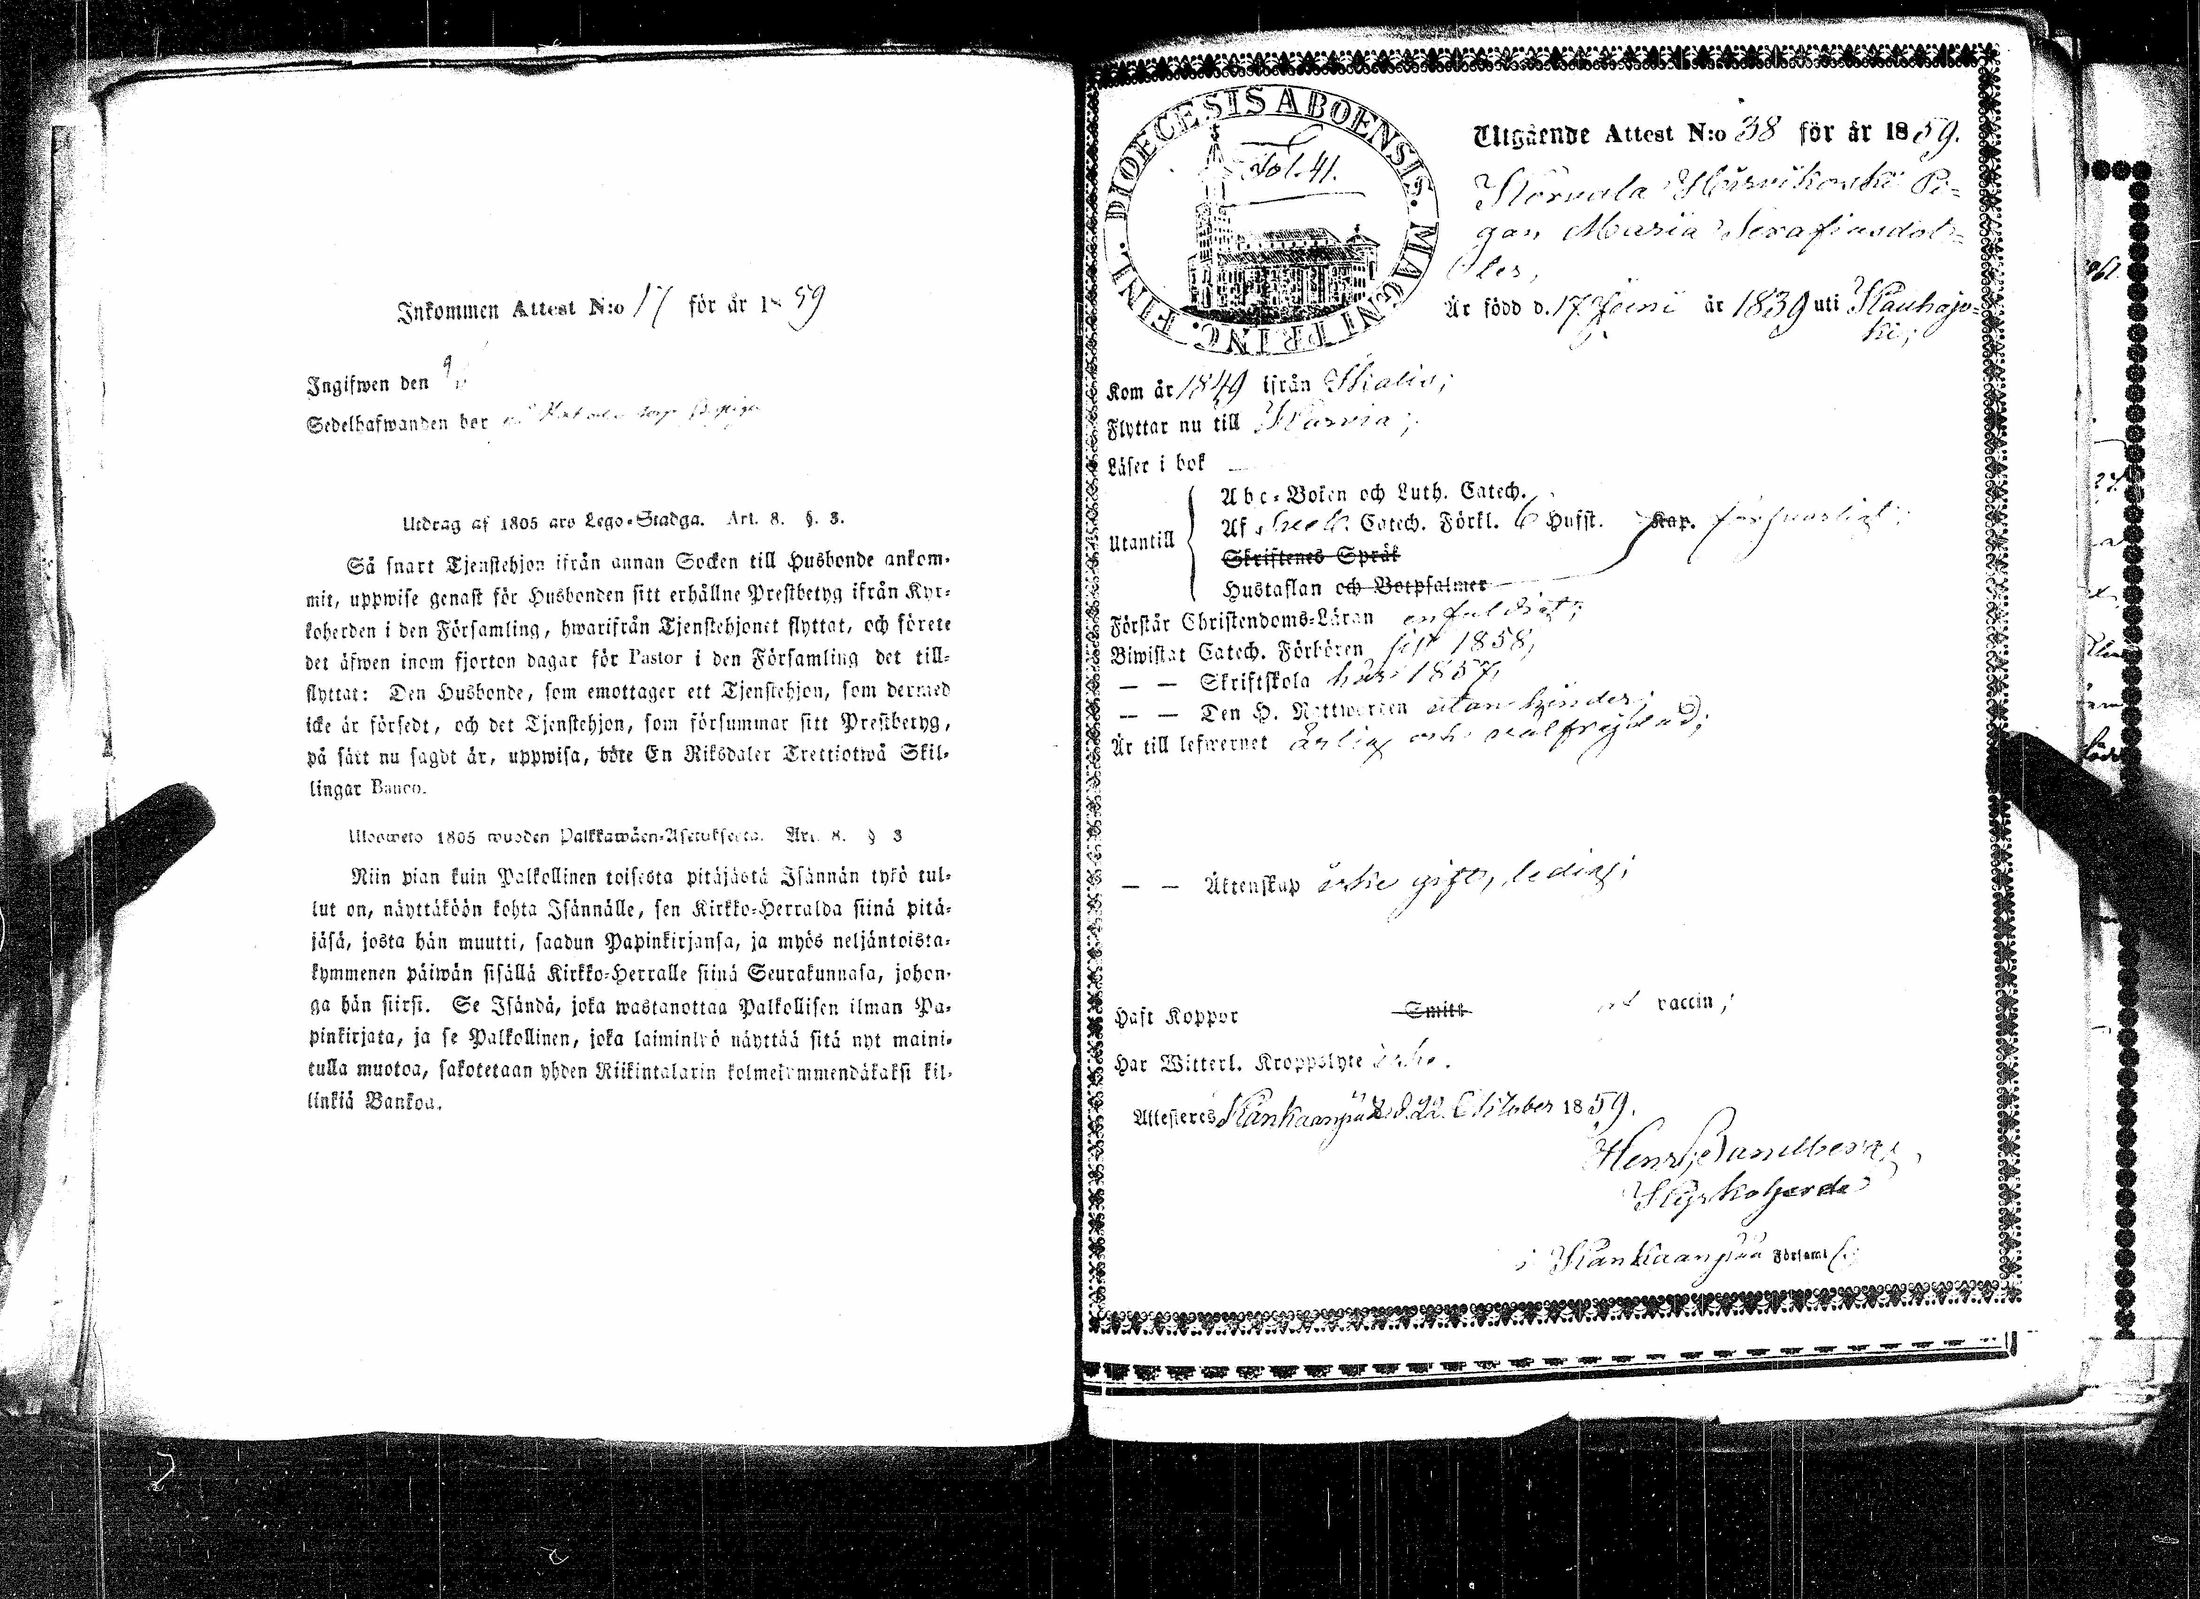 Inkommen Attest N:o 17 för år 1859
Ingifwen den
Sedelhafwanden bor
Utdrag af 1805 års Lego-Stadga. Art. 8. §. 3.
Så snart Tjenstehjon ifrån annan Socken till Husbonde ankom-
mit, uppwise genast för Husbonden sitt erhållne Prestbetyg ifrån Kyr-
koherden i den Församling, hwarifrån Tjenstehjonet flyttat, och förete
det äfwen inom fjorton dagar för Pastor i den Församling det till-
flyttat: Den Husbonde, som emottager ett Tjenstehjon, som dermed
icke är försedt, och det Tjenstehjon, som försummar sitt Prestbetyg,
på sätt nu sagdt är, uppwisa, böte En Riksdaler Trettiotwå Skil-
lingar Banco.
Ulosweto 1805 wuoden Palkkawäen-Asetuksesta. Art. 8. § 3
Niin pian kuin Palkollinen toisesta pitäjästä Isännän tykö tul-
lut on, näyttäköön kohta Isännälle, sen Kirkko-Herralda siinä pitä-
jäsä, josta hän muutti, saadun Papinkirjansa, ja myös neljäntoista-
kymmenen päiwän sisällä Kirkko-Herralle siinä Seurakunnasa, johon-
ga hän siirsi. Se Isändä, joka wastanottaa Palkollisen ilman Pa-
pinkirjata, ja se Palkollinen, joka laiminlyö näyttää sitä nyt maini-
tulla muotoa, sakotetaan yhden Riikintalarin kolmekymmendäkaksi kil-
linkiä Bankoa.
DIOECESIS ABOENSIS. MAGNI PRINC. FINL.
Fol. 41.
Utgående Attest N:o 38 för år 1859.
Pi-
gan Maria Serafinsdot-
ter,
Är född d. 17 Juni år 1839 uti Kauhajo-
ki;
Kom år 1849 ifrån
Flyttar nu till Karvia;
Läser i bok —
Utantill
Abc-Boken och Luth. Catech.
Af Sveb. Catech. Förkl. 6 Hufst. Kap. försvarligt;
Skriftenes Språk
Hustaflan och Botpsalmer
Förstår Christendoms-Läran enfaldigt;
Biwistat Catech. Förhören sist 1858;
— — Skriftskola här 1857;
— — Den H. Nattwarden utan hinder;
Är till lefwernet ärlig och välfrejdad;
— — Äktenskap icke gift, ledig;
Haft Koppor Smitt vaccin;
Har Witterl. Kroppslyte icke.
Attesteres Kankaanpää d. 22 October 1859.
Henr. Sandberg,
Kyrkoherde
i Kankaanpää Församl.